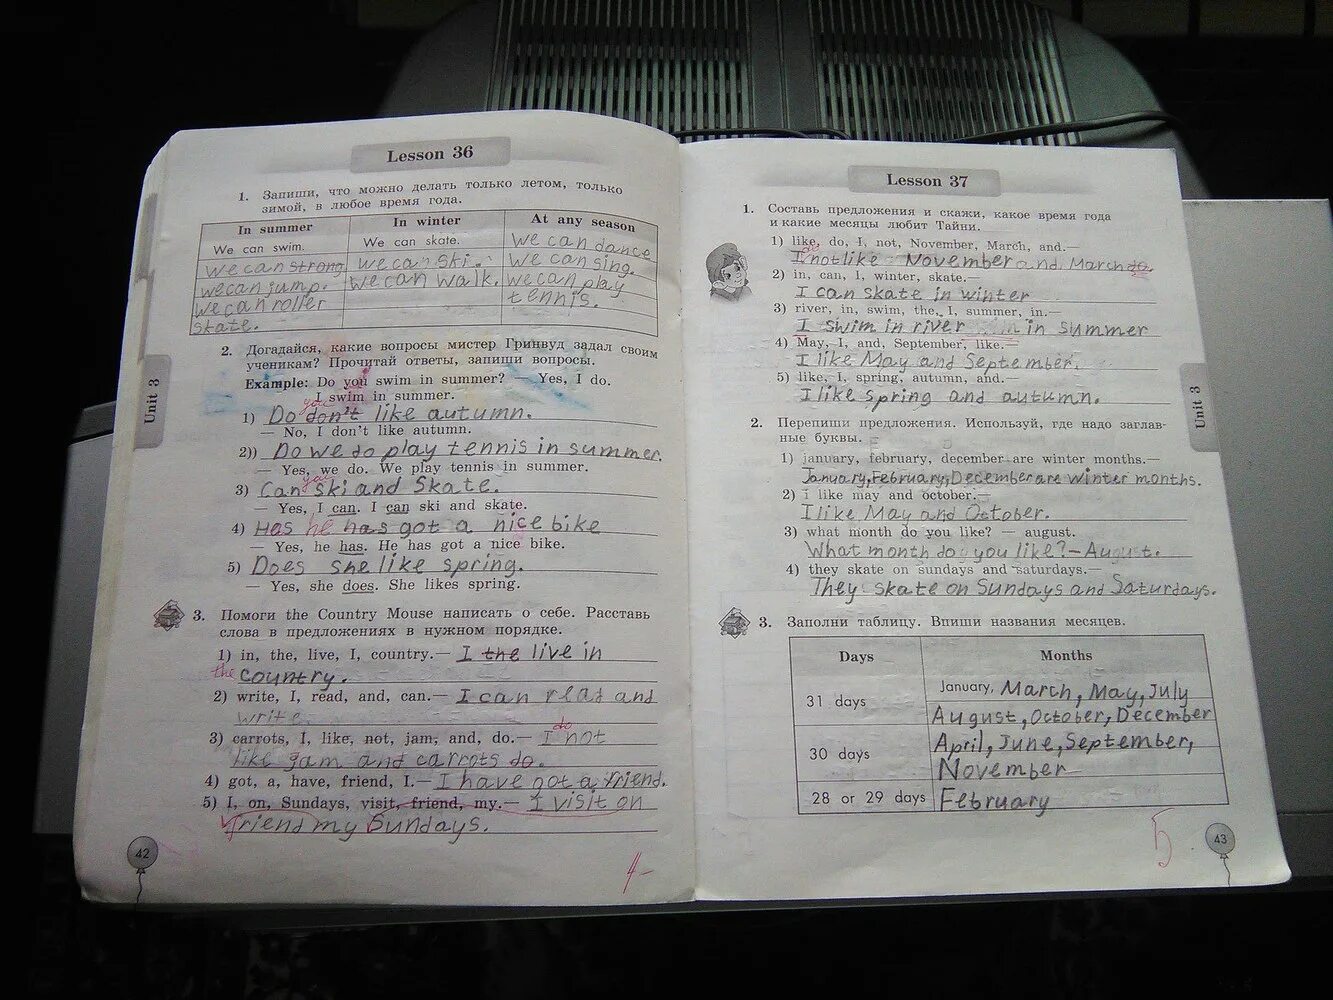 Lesson 36
1. Запиши, что можно делать только летом, только
зимой, в любое время года.
In summer In winter At any season
We can swim. We can skate. We can dance
we can strong we can ski. we can sing.
we can jump. we can walk. we can play
we can roller tennis.
skate.
2. Догадайся, какие вопросы мистер Гринвуд задал своим
ученикам? Прочитай ответы, запиши вопросы.
Example: Do you swim in summer? — Yes, I do.
I swim in summer.
you
1) Do don't like autumn.
— No, I don't like autumn.
2)) Do we do play tennis in summer.
— Yes, we do. We play tennis in summer.
you
3) Can ski and skate.
— Yes, I can. I can ski and skate.
4) Has he has got a nice bike
— Yes, he has. He has got a nice bike.
5) Does she like spring.
— Yes, she does. She likes spring.
3. Помоги the Country Mouse написать о себе. Расставь
слова в предложениях в нужном порядке.
1) in, the, live, I, country.— I the live in
the country.
2) write, I, read, and, can.— I can read and
write.
do
3) carrots, I, like, not, jam, and, do.— I not
like jam and carrots do.
4) got, a, have, friend, I.— I have got a friend.
5) I, on, Sundays, visit, friend, my.— I visit on
friend my Sundays.
Unit 3
42
4-
Lesson 37
1. Составь предложения и скажи, какое время года
и какие месяцы любит Тайни.
1) like, do, I, not, November, March, and.—
do
I not like November and March do
2) in, can, I, winter, skate.—
I can skate in winter
3) river, in, swim, the, I, summer, in.—
I swim in river in summer
4) May, I, and, September, like.—
I like May and September.
5) like, I, spring, autumn, and.—
I like spring and autumn.
2. Перепиши предложения. Используй, где надо заглав-
ные буквы.
1) january, february, december are winter months.—
January, February, December are winter months.
2) i like may and october.—
I like May and October.
3) what month do you like? — august.
What month do you like? – August.
4) they skate on sundays and saturdays.—
They skate on Sundays and Saturdays.
3. Заполни таблицу. Впиши названия месяцев.
Days Months
31 days January, March, May, July
August, October, December
30 days April, June, September,
November
28 or 29 days February
Unit 3
5
43